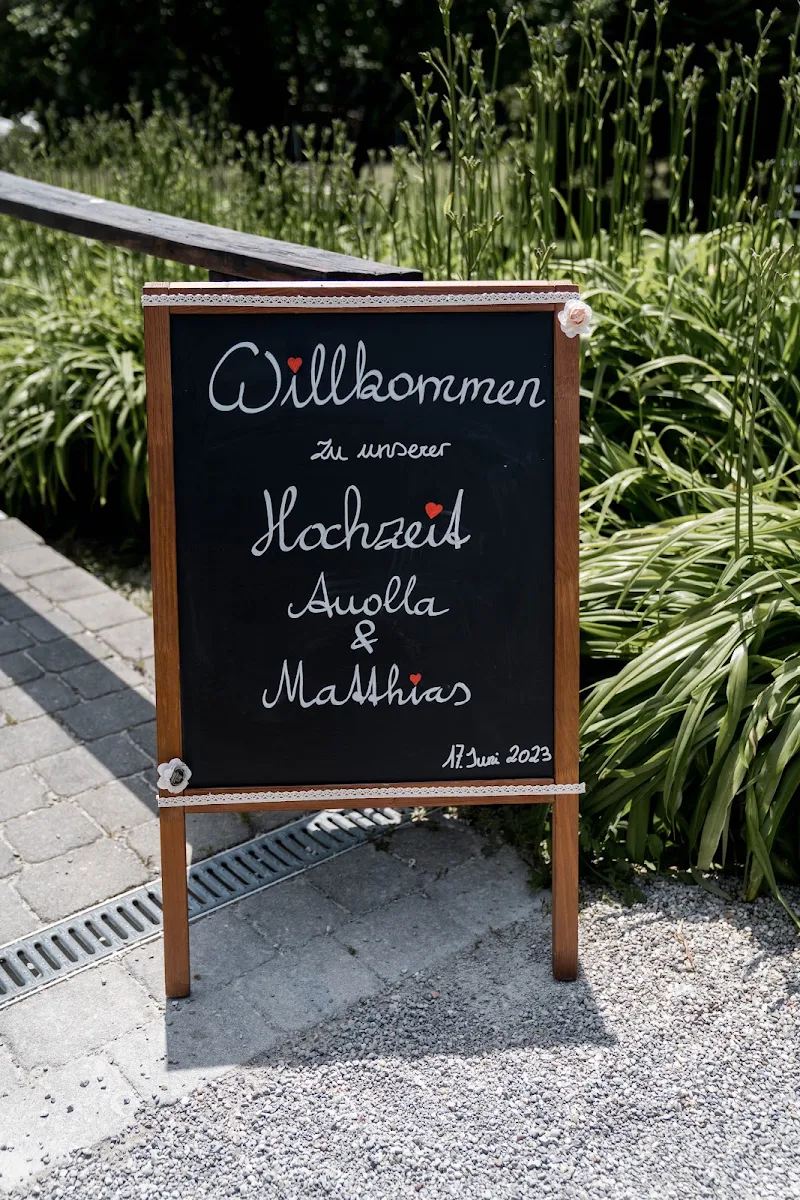 Willkommen
zu unserer
Hochzeit
Auolla
&
Matthias
17. Juni 2023